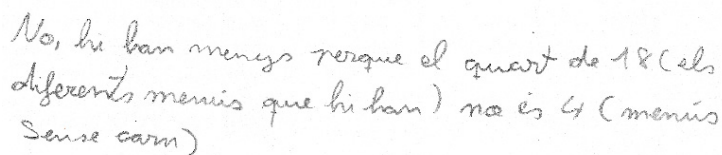 No, hi han menys perque el quart de 18 (els
diferents menús que hi han) no és 4 (menús
Sense carn)